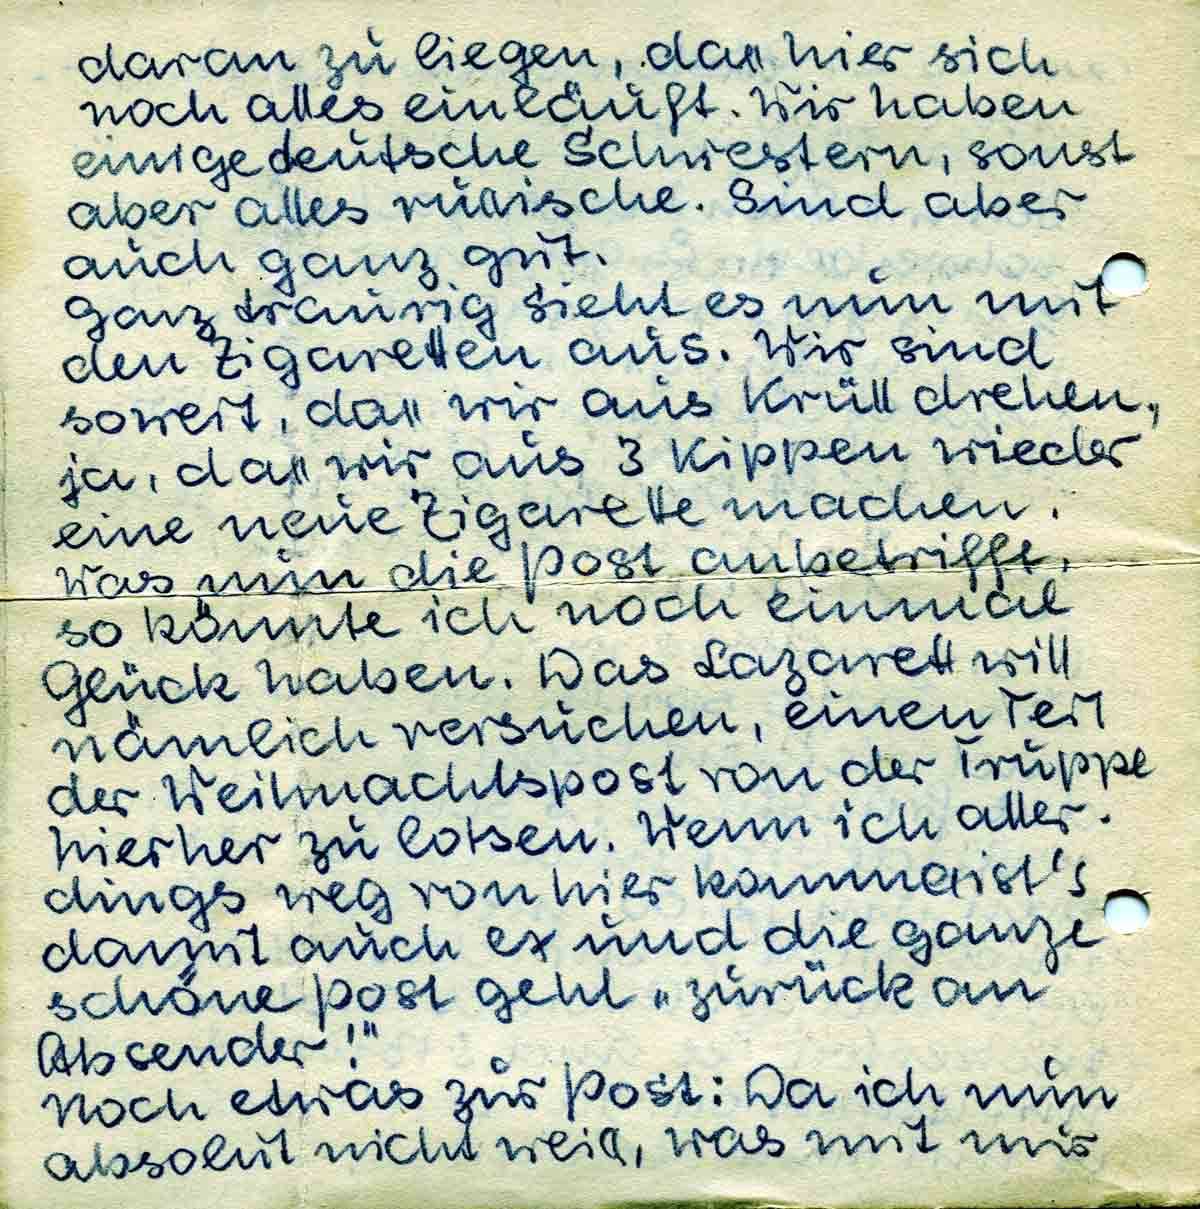 daran zu liegen, dass hier sich
noch alles einläuft. Wir haben
einige deutsche Schwestern, sonst
aber alles russische. Sind aber
auch ganz gut.
Ganz traurig sieht es nun mit
den Zigaretten aus. Wir sind
soweit, dass wir aus Krüll drehen,
ja, dass wir aus 3 Kippen wieder
eine neue Zigarette machen.
Was nun die Post anbetrifft,
so könnte ich noch einmal
Glück haben. Das Lazarett will
nämlich versuchen, einen Teil
der Weihnachtspost von der Truppe
hierher zu lotsen. Wenn ich aller-
dings weg von hier komme, ist's
damit auch ex und die ganze
schöne Post geht „zurück an
Absender!"
Noch etwas zur Post: Da ich nun
absolut nicht weiss, was mit mir